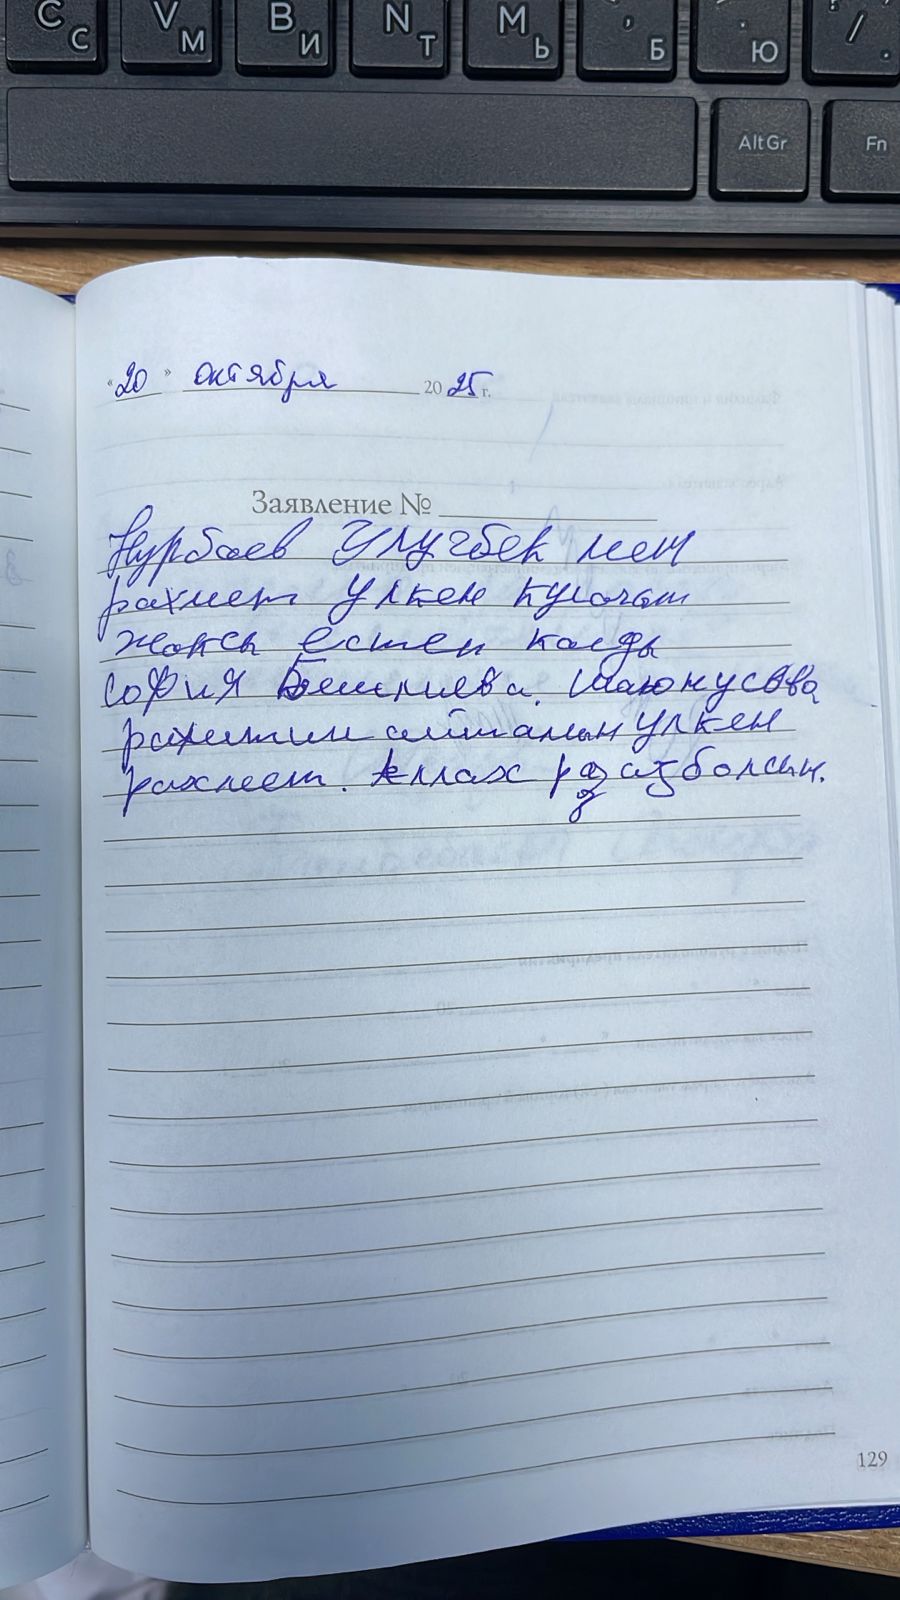 C С
V М
B И
N Т
M Ь
, Б
. Ю
/ .
AltGr
Fn
"20" октября 2025 г.
Заявление №
Нурбаев Улугбек мен
рахмет улкен
жаксы естен калды
София
рахметин айтамын улкен
рахмет. Аллах разы болсын.
129